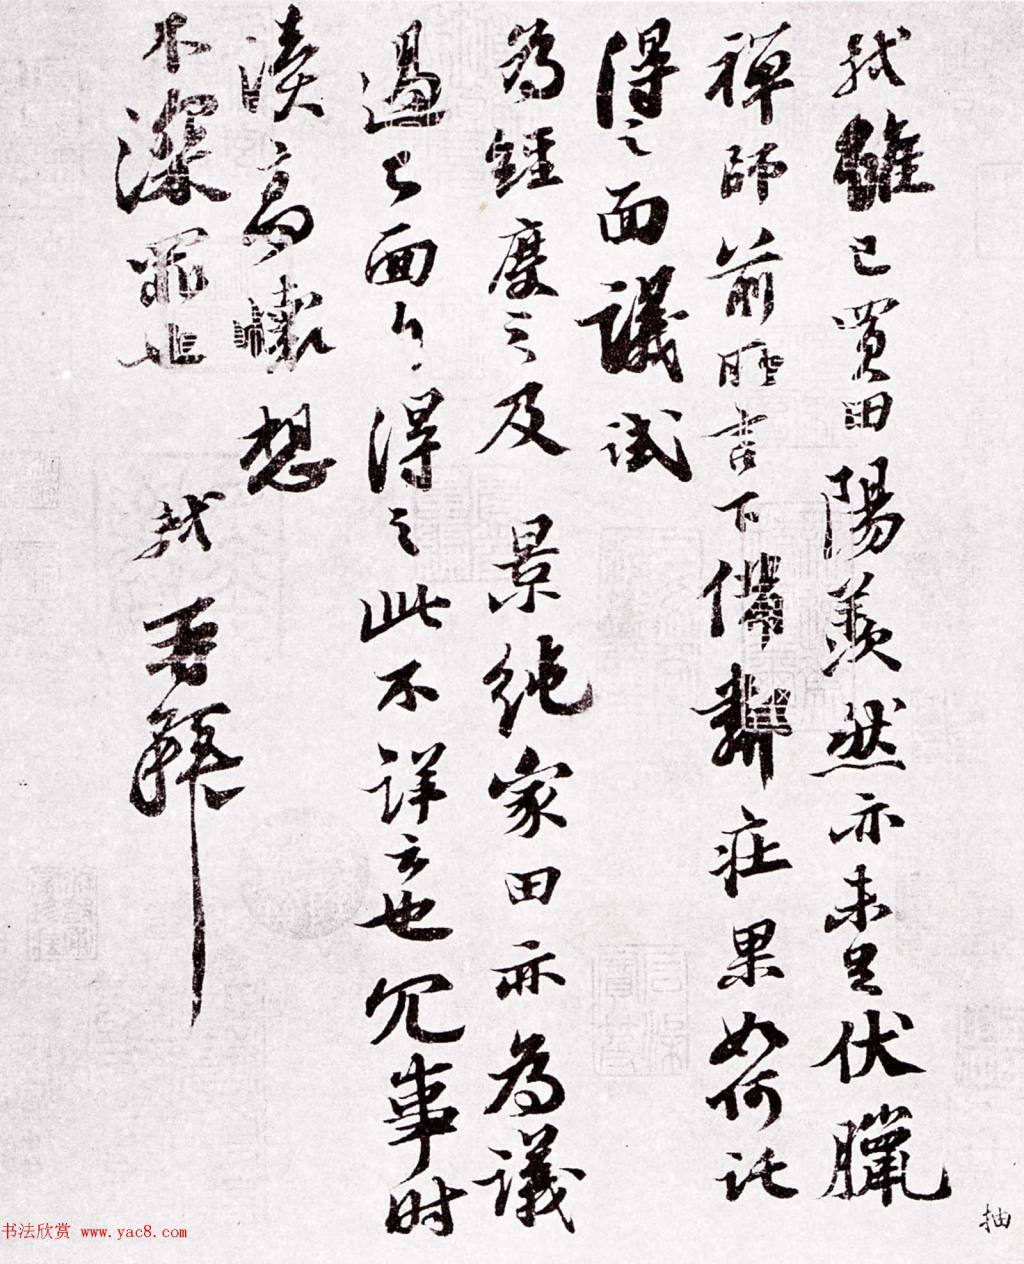 軾雖已買田陽羨然亦未足伏臘
禪師前所言下備鄰庄果如何託
得之面議試
為經度之及 景純家田亦為議
過已面白得之此不詳云也冗事時
瀆高懷想
不深罪也 軾再拜
抽
书法欣赏 www.yac8.com